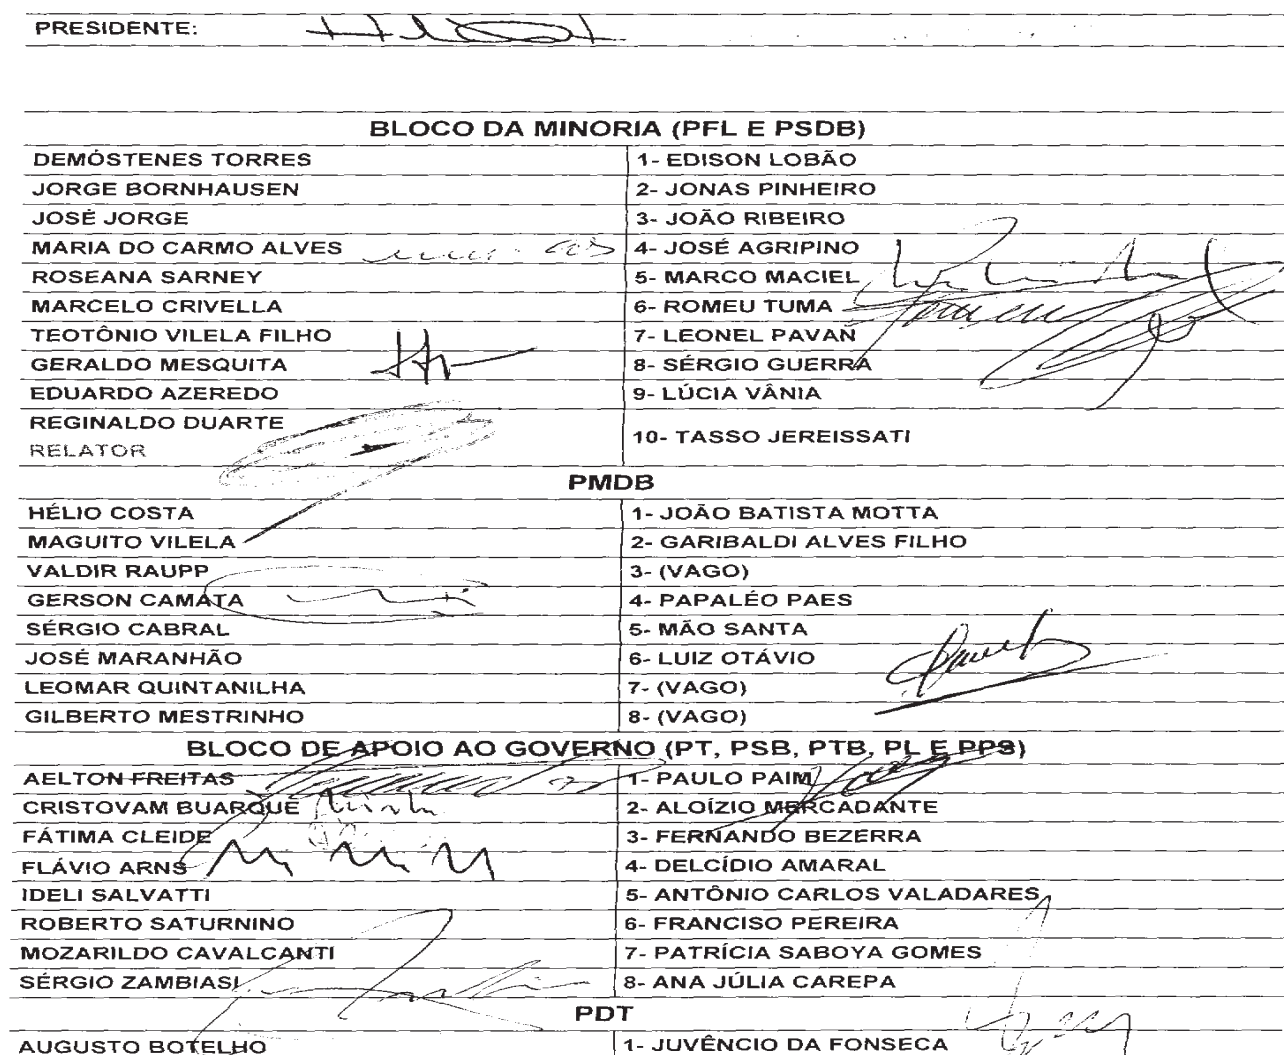 PRESIDENTE:
BLOCO DA MINORIA (PFL E PSDB)
DEMÓSTENES TORRES 1- EDISON LOBÃO
JORGE BORNHAUSEN 2- JONAS PINHEIRO
JOSÉ JORGE 3- JOÃO RIBEIRO
MARIA DO CARMO ALVES 4- JOSÉ AGRIPINO
ROSEANA SARNEY 5- MARCO MACIEL
MARCELO CRIVELLA 6- ROMEU TUMA
TEOTÔNIO VILELA FILHO 7- LEONEL PAVAN
GERALDO MESQUITA 8- SÉRGIO GUERRA
EDUARDO AZEREDO 9- LÚCIA VÂNIA
REGINALDO DUARTE
RELATOR 10- TASSO JEREISSATI
PMDB
HÉLIO COSTA 1- JOÃO BATISTA MOTTA
MAGUITO VILELA 2- GARIBALDI ALVES FILHO
VALDIR RAUPP 3- (VAGO)
GERSON CAMATA 4- PAPALÉO PAES
SÉRGIO CABRAL 5- MÃO SANTA
JOSÉ MARANHÃO 6- LUIZ OTÁVIO
LEOMAR QUINTANILHA 7- (VAGO)
GILBERTO MESTRINHO 8- (VAGO)
BLOCO DE APOIO AO GOVERNO (PT, PSB, PTB, PL E PPS)
AELTON FREITAS 1- PAULO PAIM
CRISTOVAM BUARQUE 2- ALOÍZIO MERCADANTE
FÁTIMA CLEIDE 3- FERNANDO BEZERRA
FLÁVIO ARNS 4- DELCÍDIO AMARAL
IDELI SALVATTI 5- ANTÔNIO CARLOS VALADARES
ROBERTO SATURNINO 6- FRANCISO PEREIRA
MOZARILDO CAVALCANTI 7- PATRÍCIA SABOYA GOMES
SÉRGIO ZAMBIASI 8- ANA JÚLIA CAREPA
PDT
AUGUSTO BOTELHO 1- JUVÊNCIO DA FONSECA